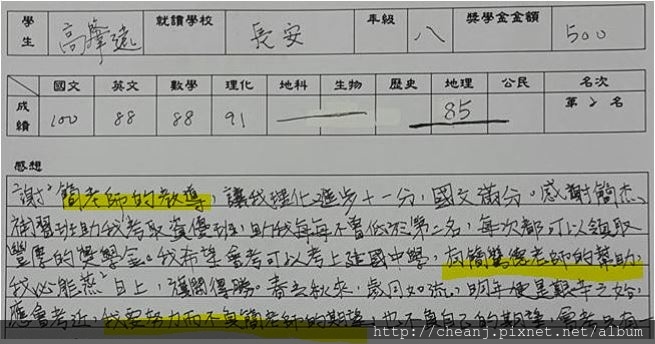 學生 高肇遠 就讀學校 長安 年級 八 獎學金金額 500
國文 英文 數學 理化 地科 生物 歷史 地理 公民 名次
成績 100 88 88 91 85 第2名
感想
謝謝簡老師的教導,讓我理化進步十一分,國文滿分。感謝簡杰
補習班助我考取資優班,助我每每不曾低於第二名,每次都可以領取
豐厚的獎學金。我希望會考可以考上建國中學,有簡老師的幫助,
我必能蒸蒸日上,旗開得勝。春去秋來,歲月如流,明年便是艱辛之始,
應會考近,我要努力而不負簡老師的期望,也不負自己的期望,會考
http://cheanj.pixnet.net/album